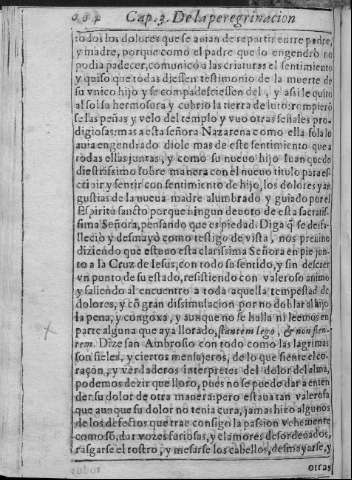 Cap. 3. De la peregrinacion
todos los dolores que se auian de repartir entre padre,
y madre, porque como el padre que lo engendrò no
podia padecer, comunicó a las criaturas el sentimiento
y quiso que todas diessen testimonio de la muerte de
su vnico hijo y se compadesciessen del, y assi le quitó
al sol su hermosura y cubrio la tierra de luto: rompierō
se las peñas y velo del templo y vuo otras señales pro-
digiosas: mas a esta señora Nazarena como ella sola lo
auia engendrado diole mas de este sentimiento que a
todas ellas juntas, y como su nueuo hijo Iuan quedó
diestrissimo sobre manera con el nueuo titulo para es-
criuir y sentir con sentimiento de hijo, los dolores y an
gustias de la nueua madre alumbrado y guiado por el
Espiritu sancto porque ningun deuoto de esta sacratis-
sima Señora, pensando que es piedad: Diga q̃ se desfa-
llecio y desmayò como testigo de vista, nos preuino
diziendo que estuuo esta clarissima Señora en pie jun-
to a la Cruz de Iesus, con todo su sentido, y sin descaer
vn punto de su estado, resistiendo con valeroso animo
y saliendo al encuentro a toda aquella tempestad de
dolores, y cõ gran dissimulacion por no doblar al hijo
la pena, y congoxa, y aunque no se halla ni leemos en
parte alguna que aya llorado, stantem lego, & non flen-
tem. Dize san Ambrosio con todo como las lagrimas
son fieles, y ciertos mensajeros, de lo que siente el co-
raçon, y verdaderos interpretes del dolor del alma,
podemos dezir que lloro, pues no se puede dar a enten
der su dolor de otra manera: pero estaua tan valerosa
que aunque su dolor no tenia cura, jamas hizo algunos
de los defectos que trae consigo la passion vehemente
como sõ, dar vozes furiosas, y clamores desordenados,
rasgarse el rostro, y mesarse los cabellos, desmayarse, y
otras